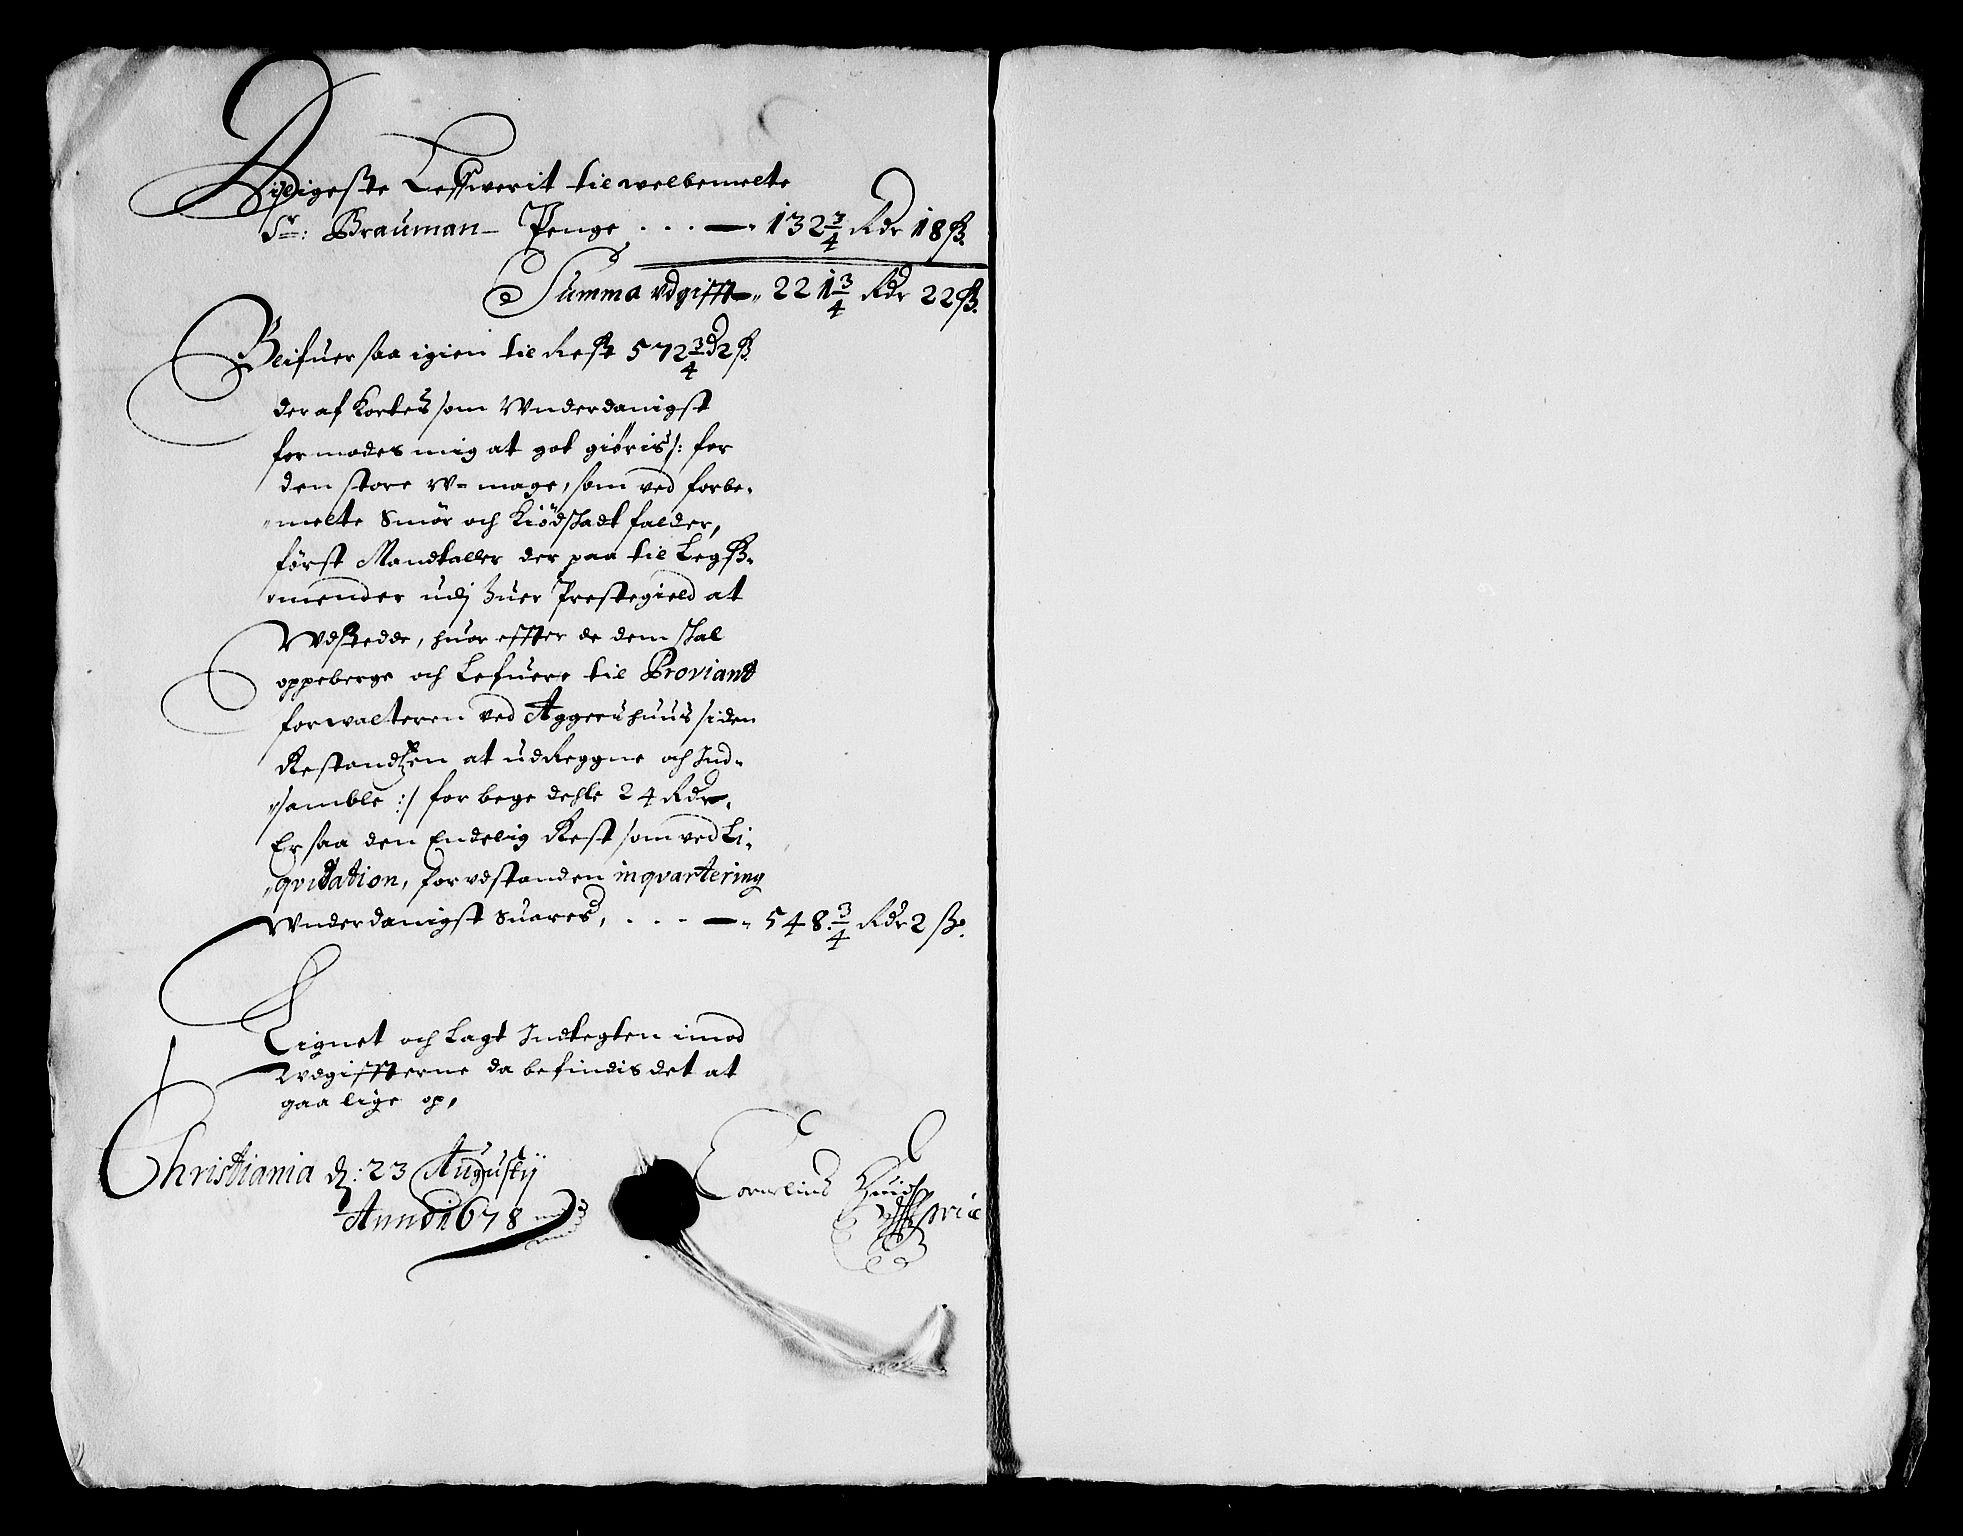 Lefwerit til welbemelte
Sr: Brauman Penge . . . — 132 3/4 Rdr 18 ß.
Summa vdgifft — 221 3/4 Rdr 22 ß.
Blifuer saa igien til Rest 572 3/4 d 2 ß.
der af kortes som Vnderdanigst
formodes mig at got giöris /: for
den store V-mage, som ved forbe-
melte Smör och Kiödskadt falder,
først Mandtaller der paa til Legß-
mender udj huer Prestegield at
Vdstedde, huor effter de dem skal
oppeberge och Lefuere til Proviant
forwalteren ved Aggershuus siden
Restandtzen at udReggne och Ind-
samble :/ for bege dehle 24 Rdr.
Er saa den Endelig Rest som ved Li-
qvidation, for vdstanden inqvartering
Vnderdanigst Suares, . . . — 548 3/4 Rdr 2 ß.
Lignet och Lagt Indtegten imod
Vdgiffterne da befindis det at
gaa lige op,
Christiania d: 23 Augustij
Anno 1678
Cornelius